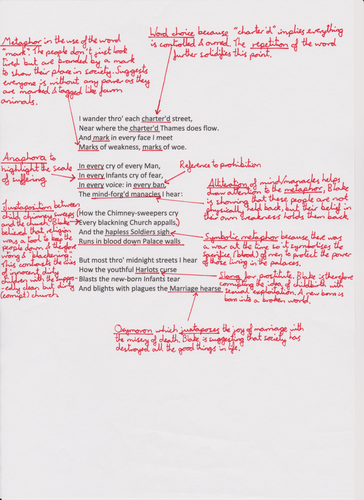 Metaphor in the use of the word
"mark". The people don't just look
tired but are branded by a mark
to show their place in society. Suggests
everyone is without any power as they
are marked & tagged like farm
animals.
Word choice because "charter'd" implies everything
is controlled & owned. The repetition of the word
further solidifies this point.
I wander thro' each charter'd street,
Near where the charter'd Thames does flow.
And mark in every face I meet
Marks of weakness, marks of woe.
Anaphora to
highlight the scale
of suffering
In every cry of every Man,
In every Infants cry of fear,
In every voice: in every ban,
The mind-forg'd manacles I hear:
Reference to prohibition
Alliteration of 'mind/manacles' helps
draw attention to the metaphor, Blake
is showing that these people are not
physically held back, but their belief in
their own weakness holds them back
Juxtaposition between
child chimney sweeps
and the church. Blake
believed that religion
was a tool to keep the
people down, & therefore
wrong & 'blackening'.
This contrasts the cries
of innocent dirty
children with the
clean but dirty
(corrupt) church
How the Chimney-sweepers cry
Every blackning Church appalls,
And the hapless Soldiers sigh
Runs in blood down Palace walls
Symbolic metaphor because there
was a war at the time so it symbolises the
sacrifice (blood) of men to protect the power
of those living in the palaces.
But most thro' midnight streets I hear
How the youthful Harlots curse
Blasts the new-born Infants tear
And blights with plagues the Marriage hearse
Slang for prostitute. Blake is therefore
corrupting the idea of childbirth with
sexual exploitation. A new born is
born into a broken world.
Oxymoron which juxtaposes the joy of marriage with
the misery of death. Blake is suggesting that society has
destroyed all the good things in life.